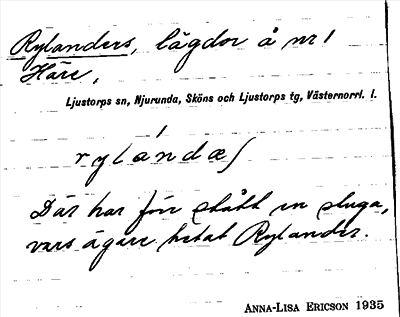 Rylanders, lägdor å nr 1
Häre,
Ljustorps sn, Njurunda, Sköns och Ljustorps tg, Västernorrl. l.
rylándæʃ
Där har förr stått en stuga,
vars ägare hetat Rylander.
ANNA-LISA ERICSON 1935